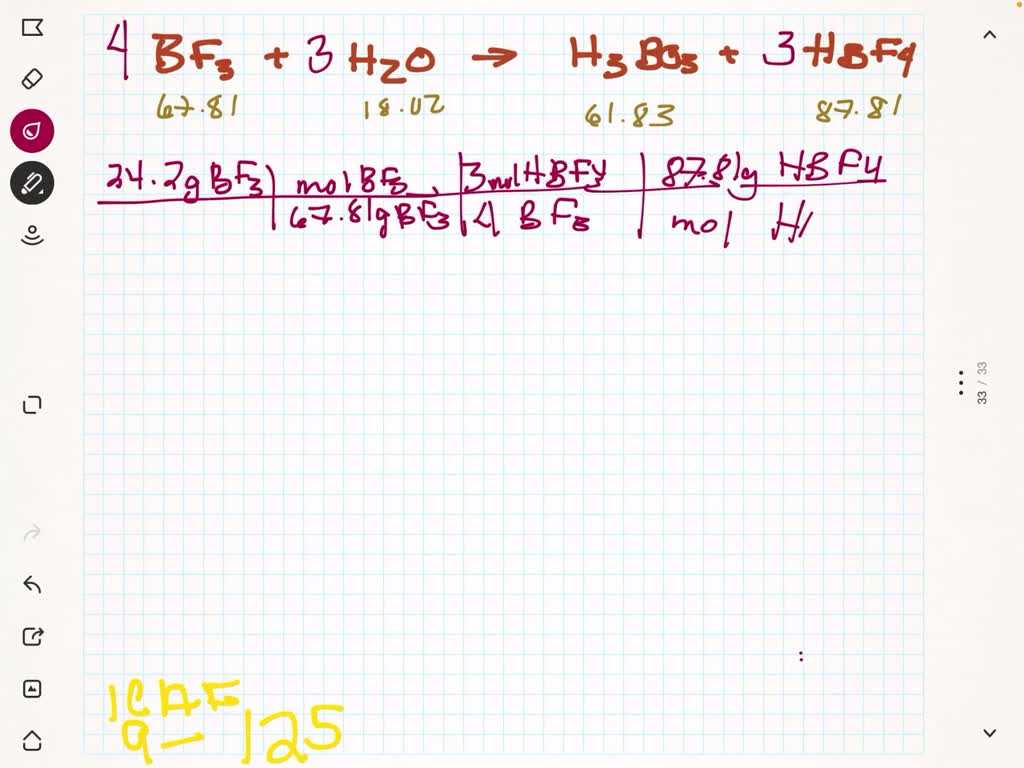 4 BF3 + 3 H2O → H3BO3 + 3 HBF4
67.81 18.02 61.83 87.81
24.2g BF3 | mol BF3 | 3 mol HBF4 | 87.81g HBF4
67.81g BF3 | 4 BF3 | mol H
33 / 33
9 — 125